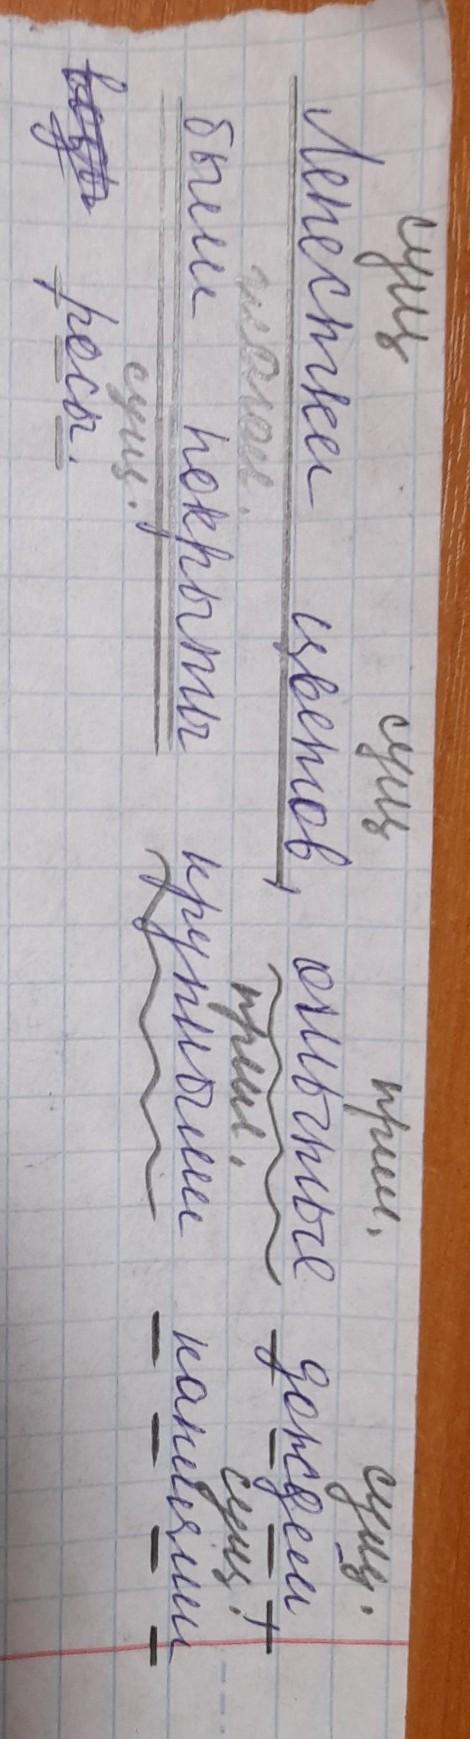 сущ сущ прил. сущ.
Лепестки цветов, омытые дождем
глагол. прил. сущ.
были покрыты крупными каплями
сущ.
росы.